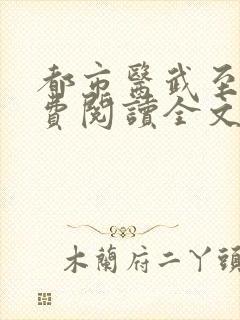 都市醫武至
費閱讀全文
木蘭府二丫頭